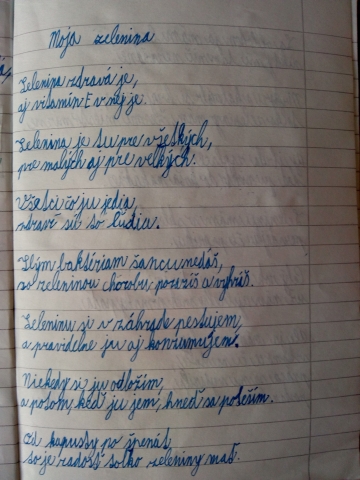 Moja zelenina
Zelenina zdravá je,
aj vitamín E v nej je.
Zelenina je tu pre všetkých,
pre malých aj pre veľkých.
Všetci čo ju jedia,
zdraví sú to ľudia.
Zlým baktériam šancu nedáš,
so zeleninou chorobu porazíš a vyhráš.
Zeleninu si v záhrade pestujem,
a pravidelne ju aj konzumujem.
Niekedy si ju odložím,
a potom, keď ju jem, hneď sa poteším.
Od kapusty po špenát,
to je radosť toľko zeleniny mať.